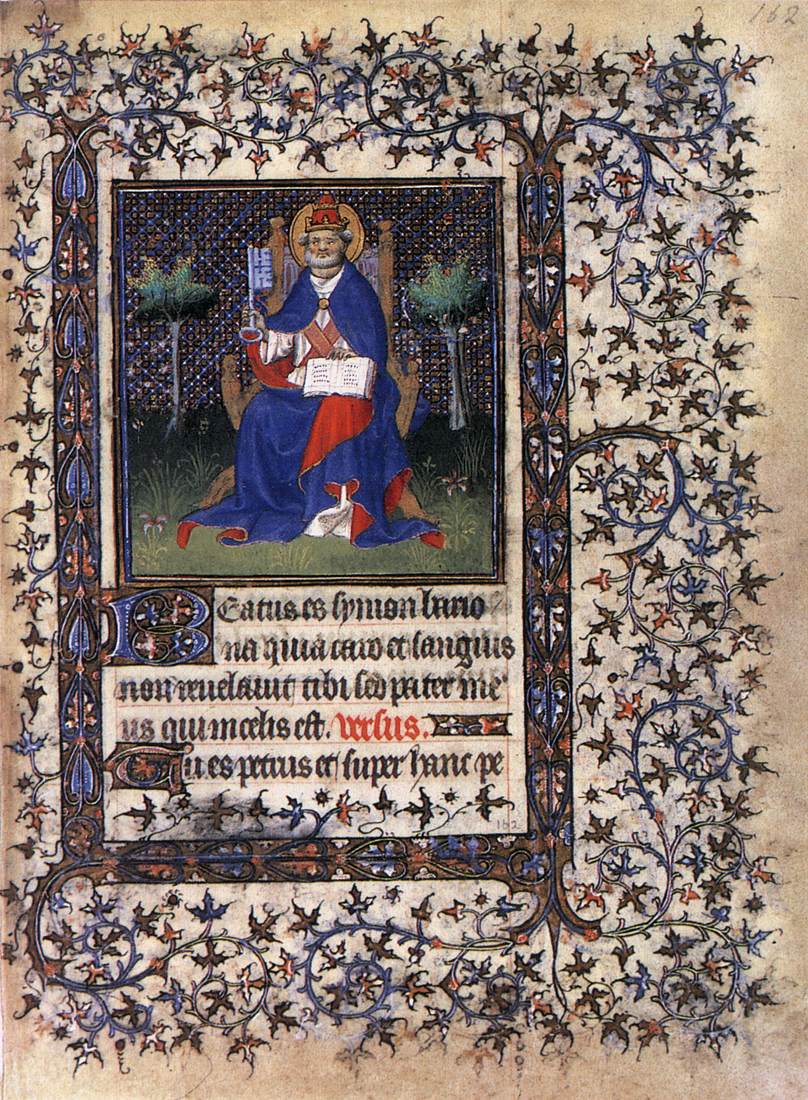 162
Beatus es symon bario
na quia caro et sanguis
non reuelauit tibi sed pater me
us qui in celis est. Versus.
Tu es petrus et super hanc pe
162